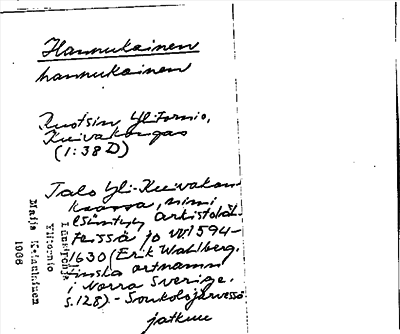 Hannukainen
hannukainen
Ruotsin Ylitornio,
Kuivakangas
(1:38 D)
Talo Yli-Kuivakan-
kaassa, nimi
esiintyy arkistoläh-
teissä jo vv. 1594-
1630 (Erik Wahlberg,
Finska ortnamn
i Norra Sverige,
s. 128). - Soukolojärvessä
jatkuu
Länsipohja
Ylitornio
Maija Keinänen
1966